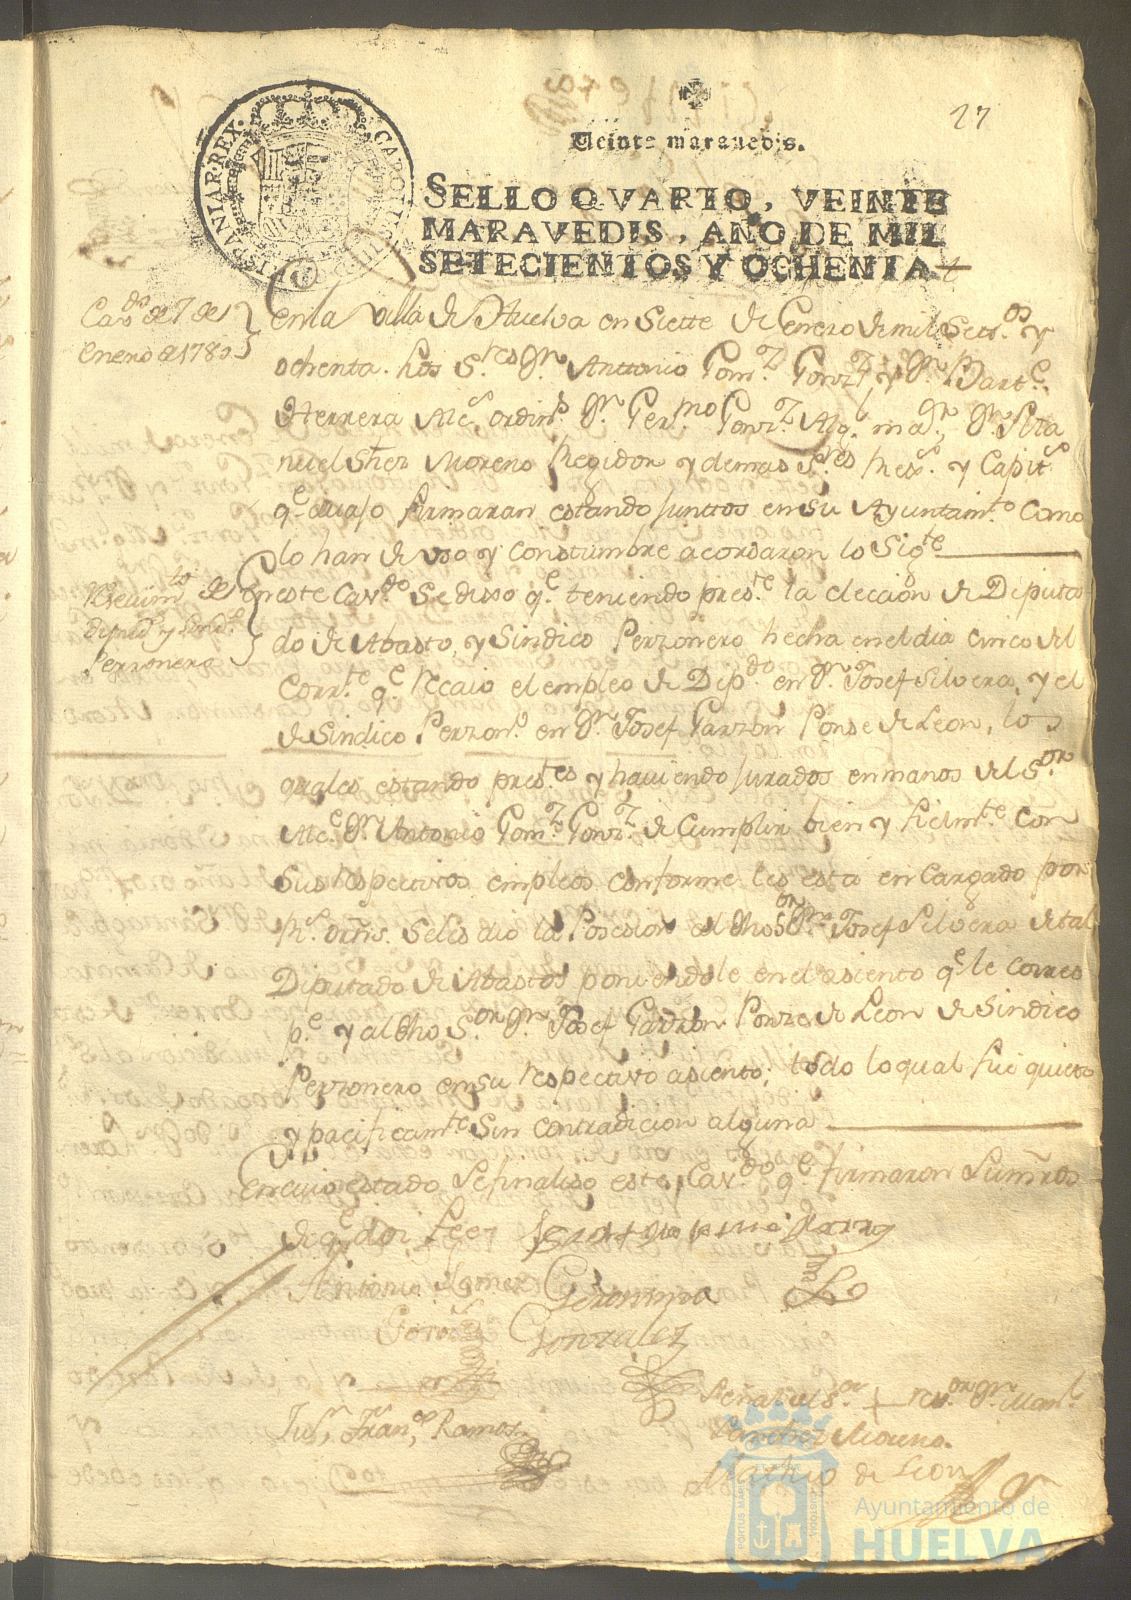 27
Veinte maravedis.
HISPANIAR·REX· CAROLUS
SELLO QVARTO, VEINTE
MARAVEDIS, AÑO DE MIL
SETECIENTOS Y OCHENTA
Cavdo de 7 de
enero de 1780
en la Villa de Huelva en Siette de Enero de mil Settos y
ochenta. los Sres Dn Anttonio Gomz Gonzz, y Dn Barte
Herrera Alcs ordins Dn Germo Gonzz Algl mar, Dn Ma
nuel Shez Moreno Regidor y demas Sres y Capits
qe avajo firmaran estando juntos en su Ayuntamto Como
lo han de uso y constumbre acordaron lo Sigte
Recivimto de
diputo y Sindo
Perzonero
En este Cavdo Se dixo qe teniendo preste la eleccion de Diputa
do de Abasto, y Sindico Perzonero hecha en el dia cinco del
Corrte qe Recaio el empleo de Dipdo en Dn Josef Silvera, y el
de Sindico Perzono en Dn Josef Garzon Ponse de Leon, los
quales estando prestes y haviendo jurados en manos del Sor
Alce Dn Antonio Gomz Gonzz de Cumplir bien y fielmte con
Sus respectivos empleos conforme les está encargado por
Rs ordns. Se les dio la Posesion al dho Sor Dn Josef Silvera de tal
Diputado de Abastos poniendole en el asiento qe le corres
pe y al dho Sor Dn Josef Garzon Ponze de Leon de Sindico
Perzonero en su respectivo asiento; todo lo qual fue quieto
y pacificamte Sin contradicion alguna
En cuio estado Se finaliso este Cavdo qe firmaron Sumrds
de qe doi fee
Antonio Gomez
Gonz
Geronimo
Gonzalez
Jun Frano Ramos
Señal del Sor + Rexor Dn Manl
Sanchez Moreno.
de Leon
Ayuntamiento de
HUELVA